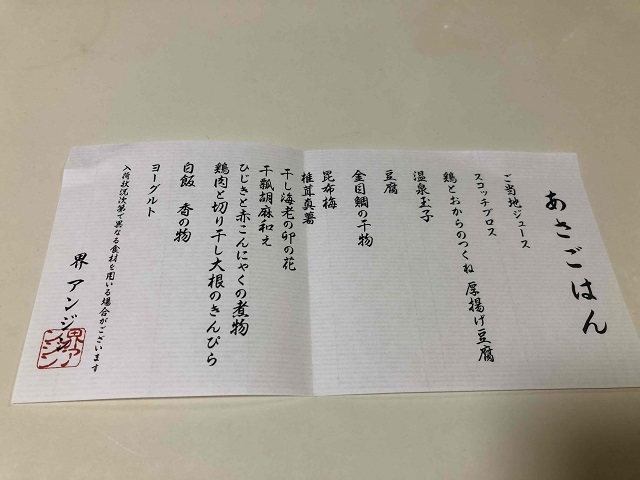 あさごはん
ご当地ジュース
スコッチブロス
鶏とおからのつくね 厚揚げ豆腐
温泉玉子
豆腐
金目鯛の干物
昆布梅
椎茸真薯
干し海老の卯の花
干瓢胡麻和え
ひじきと赤こんにゃくの煮物
鶏肉と切り干し大根のきんぴら
白飯 香の物
ヨーグルト
入荷状況次第で異なる食材を用いる場合がございます
界 アンジン
界アンジン